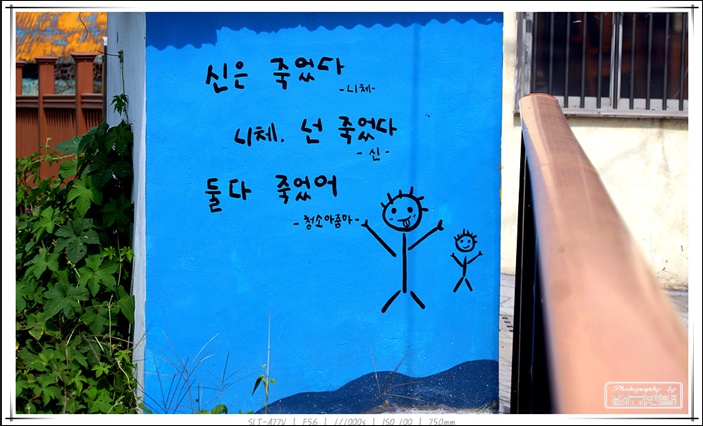 신은 죽었다
-니체-
니체. 넌 죽었다
-신-
둘다 죽었어
-청소아줌마-
Photography by
SLT-A77V | F5.6 | 1/1000s | ISO 100 | 75.0mm